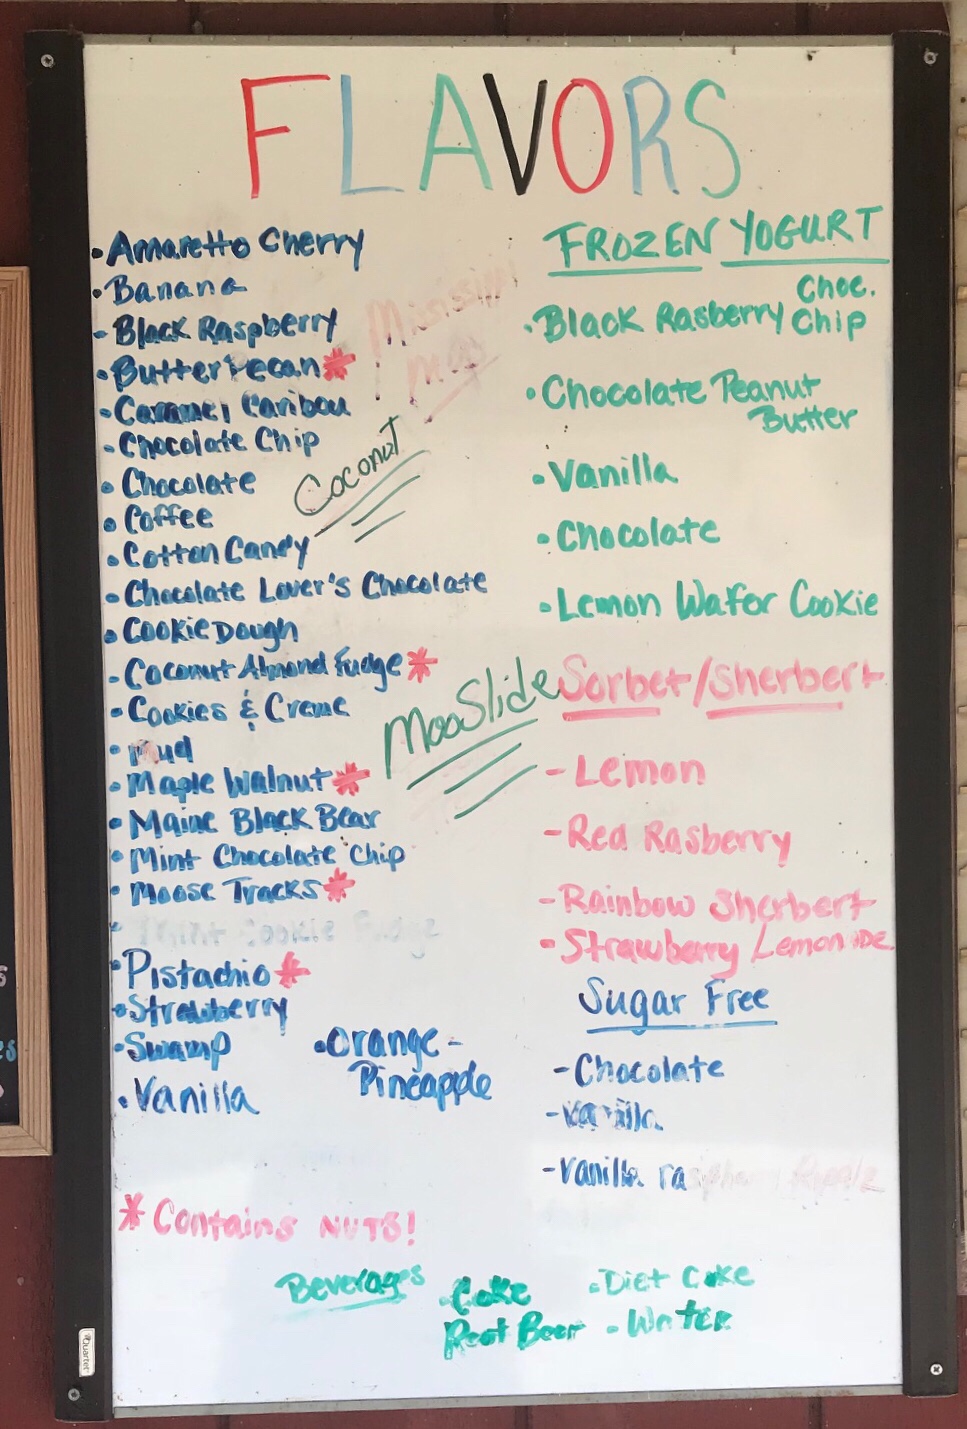 FLAVORS
• Amaretto Cherry
• Banana
• Black Raspberry
• Butter Pecan *
• Caramel Caribou
• Chocolate Chip
• Chocolate
• Coffee
• Cotton Candy
• Chocolate Lover's Chocolate
• Cookie Dough
• Coconut Almond Fudge *
• Cookies & Creme
• Mud
• Maple Walnut *
• Maine Black Bear
• Mint Chocolate Chip
• Moose Tracks *
• Mint Cookie Fudge
• Pistachio *
• Strawberry
• Swamp
• Vanilla
• Orange-
Pineapple
Coconut
MooSlide
* Contains NUTS!
FROZEN YOGURT
• Black Rasberry Choc.
Chip
• Chocolate Peanut
Butter
• Vanilla
• Chocolate
• Lemon Wafer Cookie
Sorbet/Sherbert
- Lemon
- Red Rasberry
- Rainbow Sherbert
- Strawberry Lemonade
Sugar Free
- Chocolate
- Vanilla
- Vanilla raspberry
Beverages
• Coke
Root Beer
• Diet Coke
• Water
Quartet